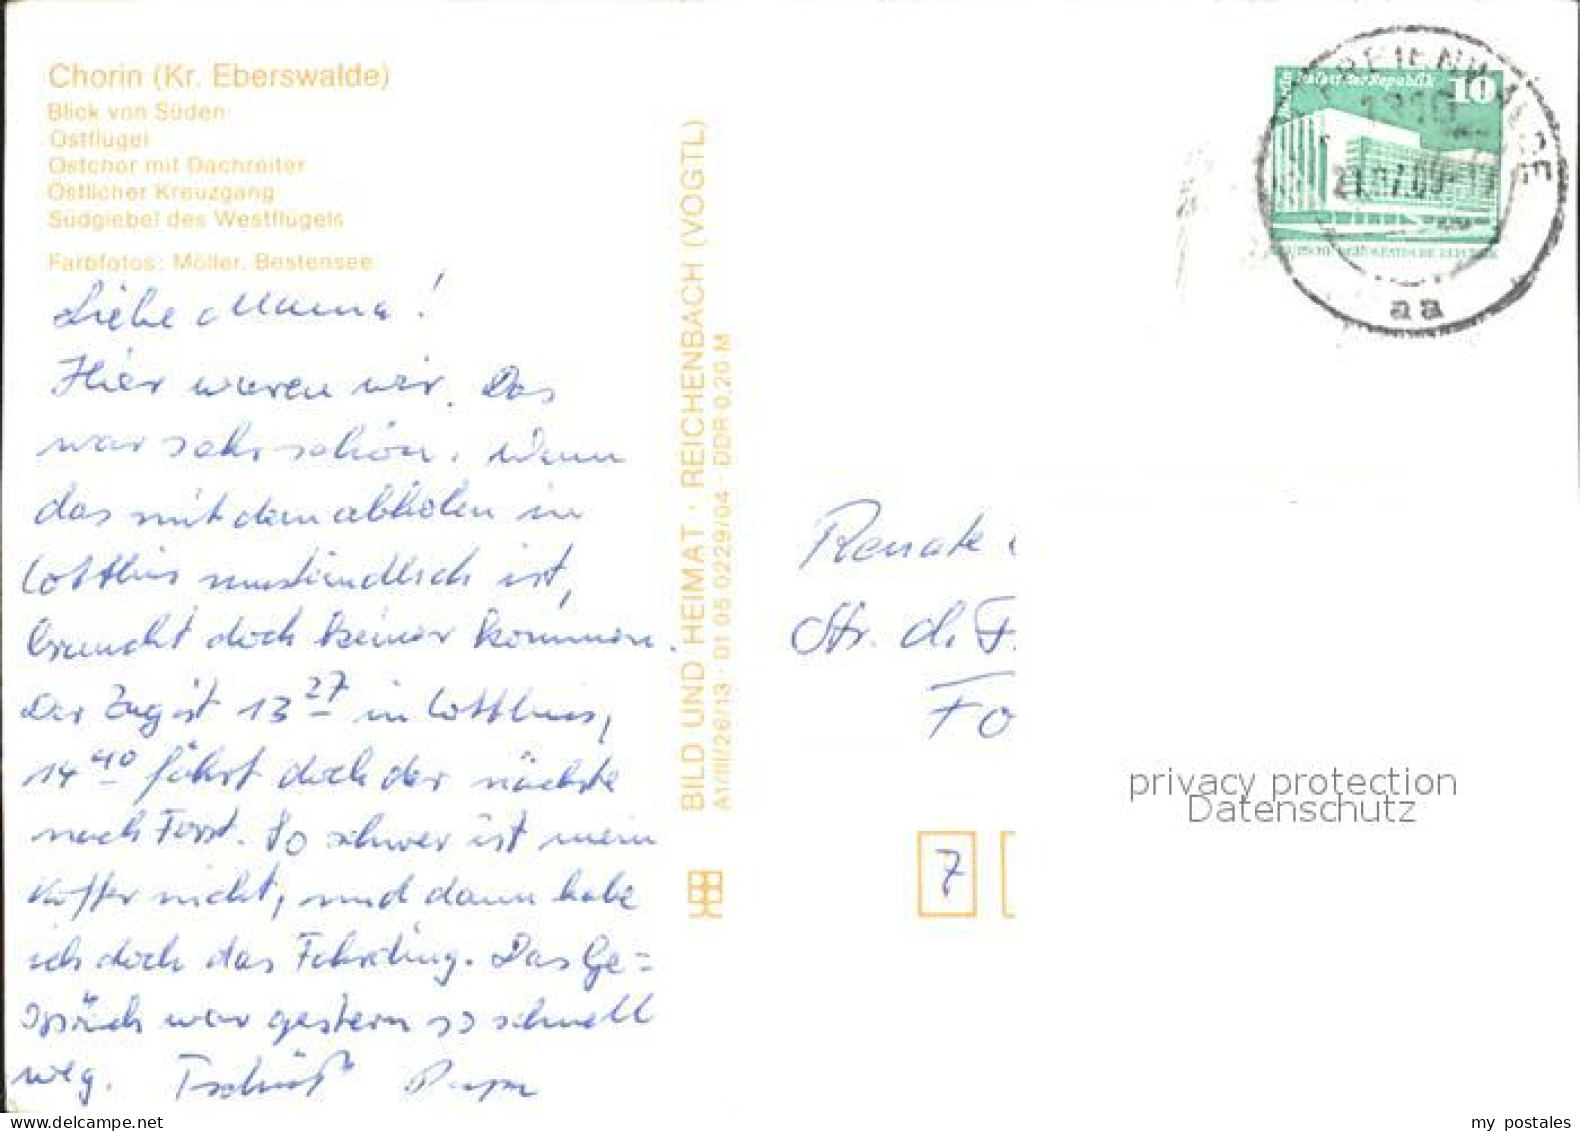 Chorin (Kr. Eberswalde)
Blick von Süden
Ostflügel
Ostchor mit Dachreiter
Östlicher Kreuzgang
Südgiebel des Westflügels
Farbfotos: Möller, Bestensee
Liebe Mama!
Hier waren wir. Das
war sehr schön. Wenn
das mit dem abholen in
Cottbus umständlich ist,
braucht doch keiner kommen.
Der Zug ist 13 27 in Cottbus,
14 40 fährt doch der nächste
nach Forst. So schwer ist mein
Koffer nicht, und dann habe
ich doch das Fahrding. Das Ge=
spräch war gestern so schnell
weg. Tschüß Papa
BILD UND HEIMAT · REICHENBACH (VOGTL)
A1/III/26/13 · 01 05 0229/04 · DDR 0,20 M
10
aa
Renate
Str. d. F.
Fo
7
privacy protection
Datenschutz
www.delcampe.net
my postales